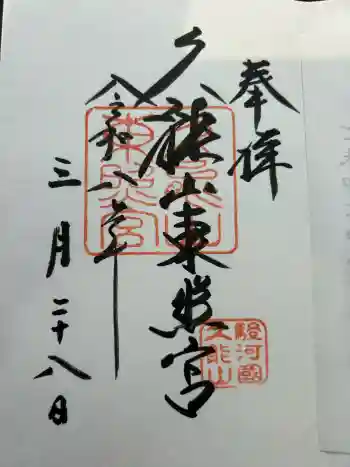 奉拝
久能山東照宮
令和八年
三月二十八日
駿河國
久能山